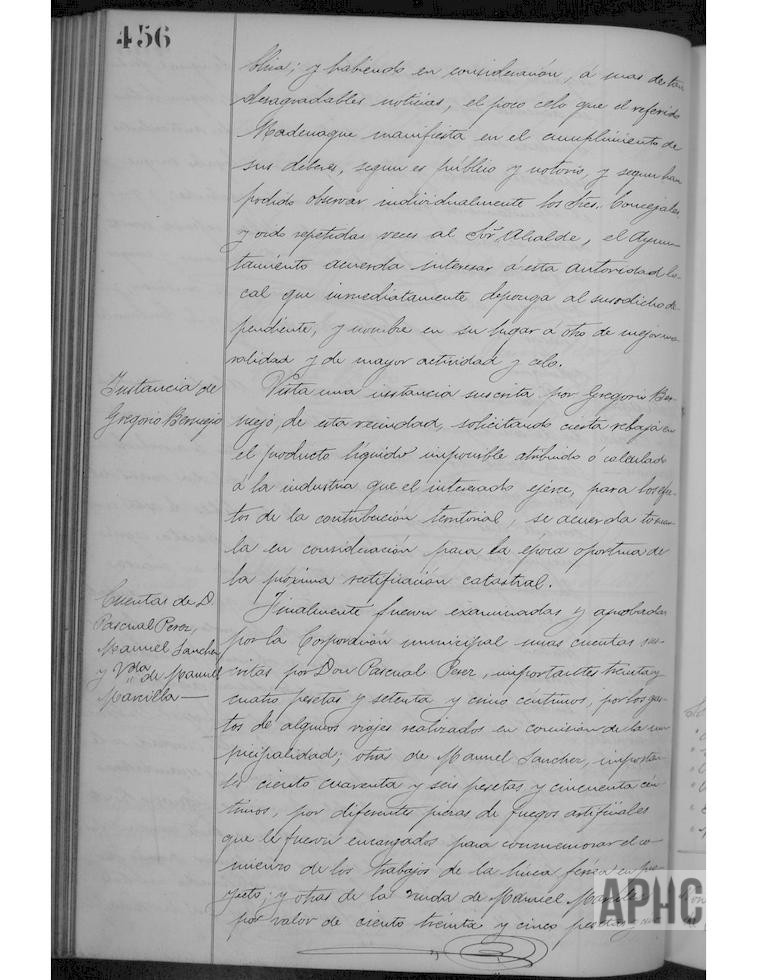 456
blica; y habiendo en consideración, á mas de tan
desagradables noticias, el poco celo que el referido
Madenaque manifiesta en el cumplimiento de
sus deberes, segun es publico y notorio, y segun han
podido observar individualmente los Sres. Concejales
y oido repetidas veces al Sor. Alcalde, el Ayun-
tamiento acuerda interesar á esta autoridad lo-
cal que inmediatamente deponga al susodicho de-
pendiente, y nombre en su lugar á otro de mejor mo-
ralidad y de mayor actividad y celo.
Instancia de
Gregorio Bermejo
Vista una instancia suscrita por Gregorio Ber-
mejo de esta vecindad, solicitando cierta rebaja en
el producto líquido imponible atribuido ó calculado
á la industria que el interesado ejerce, para los efec-
tos de la contribución territorial, se acuerda tomar-
la en consideración para la época oportuna de
la próxima rectificación catastral.
Cuentas de D.
Pascual Perez,
Manuel Sanchez
y Vda de Manuel
Marcilla
Finalmente fueron examinadas y aprobadas
por la Corporación municipal unas cuentas sus-
critas por Don Pascual Perez, importantes treinta y
cuatro pesetas y setenta y cinco céntimos, por los gas-
tos de algunos viajes realizados en comisión de la mu-
nicipalidad; otra de Manuel Sanchez, importan-
te ciento cuarenta y seis pesetas y cincuenta cén-
timos, por diferentes piezas de fuegos artificiales
que le fueron encargados para conmemorar el co-
mienzo de los trabajos de la linea férrea en pro-
yecto; y otras de la viuda de Manuel
por valor de ciento treinta y cinco pesetas
APHC